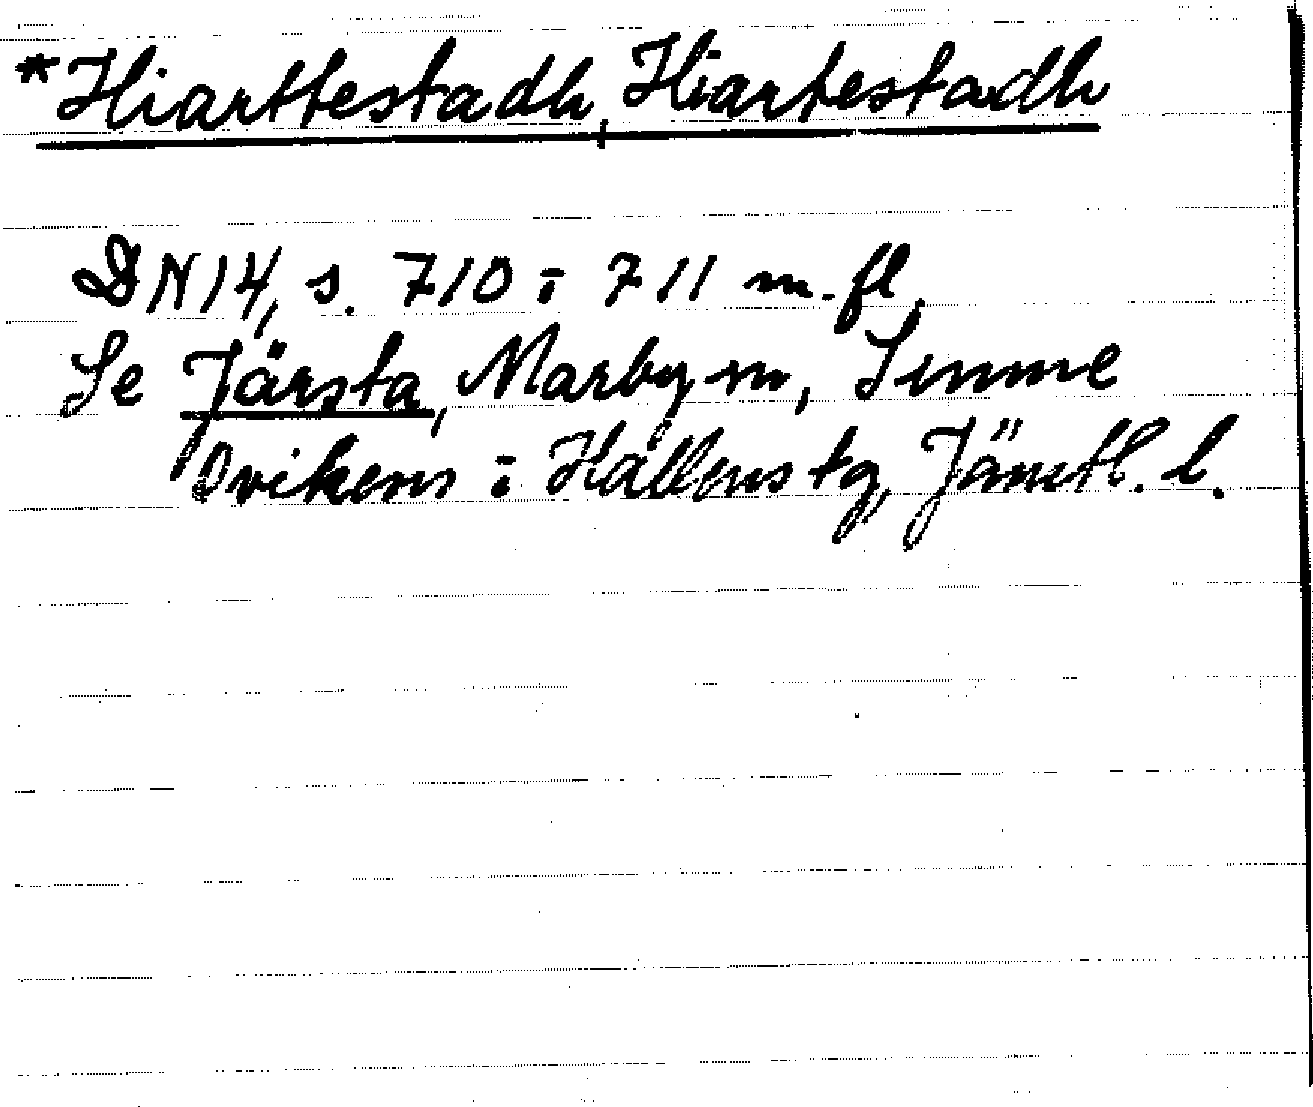 *Hiarttestadh, Hiartestadh
DN 14, s. 710 i 711 m. fl.
Se Järsta, Marby sn, Sunne
Ovikens i Hallens tg, Jämtl. l.